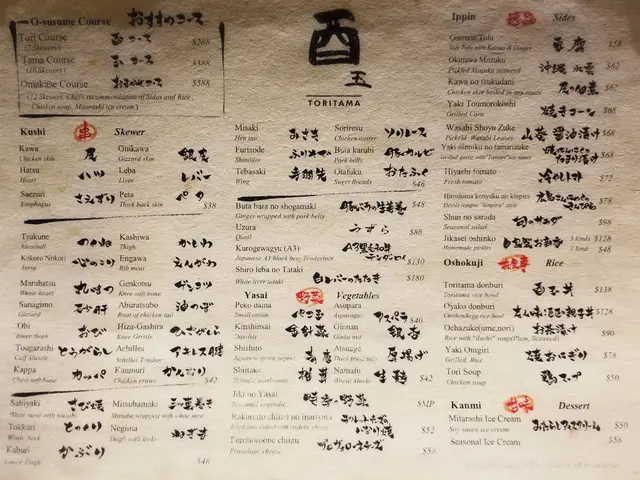 O-susume Course おすすめコース
Tori Course 酉コース $268
(7 Skewers)
Tama Course 玉コース $388
(10 Skewers)
Omakase Course おまかせコース $588
(12 Skewers, Chef's recommendation of Sides and Rice,
Chicken soup, Mitarashi ice cream)
酉玉
TORITAMA
Kushi 串 Skewer
Kawa 皮
Chicken skin
Ginkawa 銀皮
Gizzard skin
Hatsu ハツ
Heart
Leba レバー
Liver
Saezuri さえずり
Esophagus
Peta ペタ
Thick back skin
$38
Tsukune つくね
Meatball
Kashiwa かしわ
Thigh
Kokoro Nokori 心のこり
Aorta
Engawa えんがわ
Rib meat
Maruhatsu 丸はつ
Whole heart
Genkotsu ゲンコツ
Knee soft bone
Sunagimo 砂肝
Gizzard
Aburatsubo 油つぼ
Root of chicken tail
Obi おび
Inner thigh
Hiza-Gashira ひざがしら
Knee Gristle
Tougarashi とうがらし
Calf Muscle
Achilles アキレス腱
Achilles Tendon
Kappa カッパ
Chest soft bone
Kanmuri かんむり
Chicken crown
$42
Sabiyaki さび焼
White meat with wasabi
Mitsubamaki 三つ葉巻き
Mitsuba wrapped with white meat
Tokkuri とっくり
Whole Neck
Negima ねぎま
Thigh with leeks
Kaburi かぶり
Lower Thigh
$46
Misaki みさき
Hen tail
Soriresu ソリレース
Chicken oyster
Furisode ふりそで
Shoulder
Buta karubi 豚カルビ
Pork belly
Tebasaki 手羽先
Wing
Otafuku おたふく
Sweet Breads
$46
Buta bara no shogamaki 豚バラの生姜巻 $48
Ginger wrapped with pork belly
Uzura うずら $88
Quail
Kurogewagyu (A3) A3黒毛和牛テンダーロイン $130
Japanese A3 black beef Tenderloin
Shiro leba no Tataki 白レバーのたたき $180
White liver tataki
Yasai 野菜 Vegetables
Peko dama ペコ玉
Small onion
Asupara アスパラ
Asparagus
$46
Kinshinsai 金針菜
Day-lily
Ginnan 銀杏
Ginko nut
Shishito
Japanese green pepper
Atsuage 厚揚げ
Thick fried tofu
Shiitake 椎茸
Shiitake mushrooms
Namafu 生麩
Wheat Mochi
$42
Jiki no Yasai 時季の野菜 $MP
Seasonal vegetable
Rakuretto chiizu no inariyaki ラクレットチーズいなり焼 $52
Puroborone chiizu プロヴォローネチーズ $58
Provolone cheese
Ippin 逸品 Sides
$58
Okinawa Mozuku 沖縄もずく $62
Pickled Mozuku seaweed
Kawa no tsukudani 皮の佃煮 $67
Chicken skin boiled in soy-sauce
Yaki Toumorokoshi 焼きコーン $68
Grilled Corn
Wasabi Shoyu Zuke 山葵醤油漬け $68
Pickled-Wasabi Leaves
Yaki ninniku no tamarizuke $68
Grilled garlic with "Tamari" soy sauce
Hiyashi tomato 冷やしトマト $72
Fresh tomato
Hiroshima konyaku no kinpira $78
Devils tongue "kinpira" style
Shun no sarada 旬のサラダ $98
Seasonal salad
Jikasei oshinko 自家製お新香 3 kinds $128
Homemade pickles 1 kind $48
Oshokuji お食事 Rice
Toritama donburi 酉玉丼 $138
Toritama rice bowl
Oyakodonburi $128
Chicken&egg rice bowl
Ochazuke(ume,nori) お茶漬け $90
Rice with "dashi" soup(Plum, Seaweed)
Yaki Onigiri 焼おにぎり $76
Grilled, Rice
Tori Soup 鶏スープ $50
Chicken soup
Kanmi 甘味 Dessert
Mitarashi Ice Cream みたらしアイスクリーム $50
Soy sauce ice cream
Seasonal Ice Cream $58